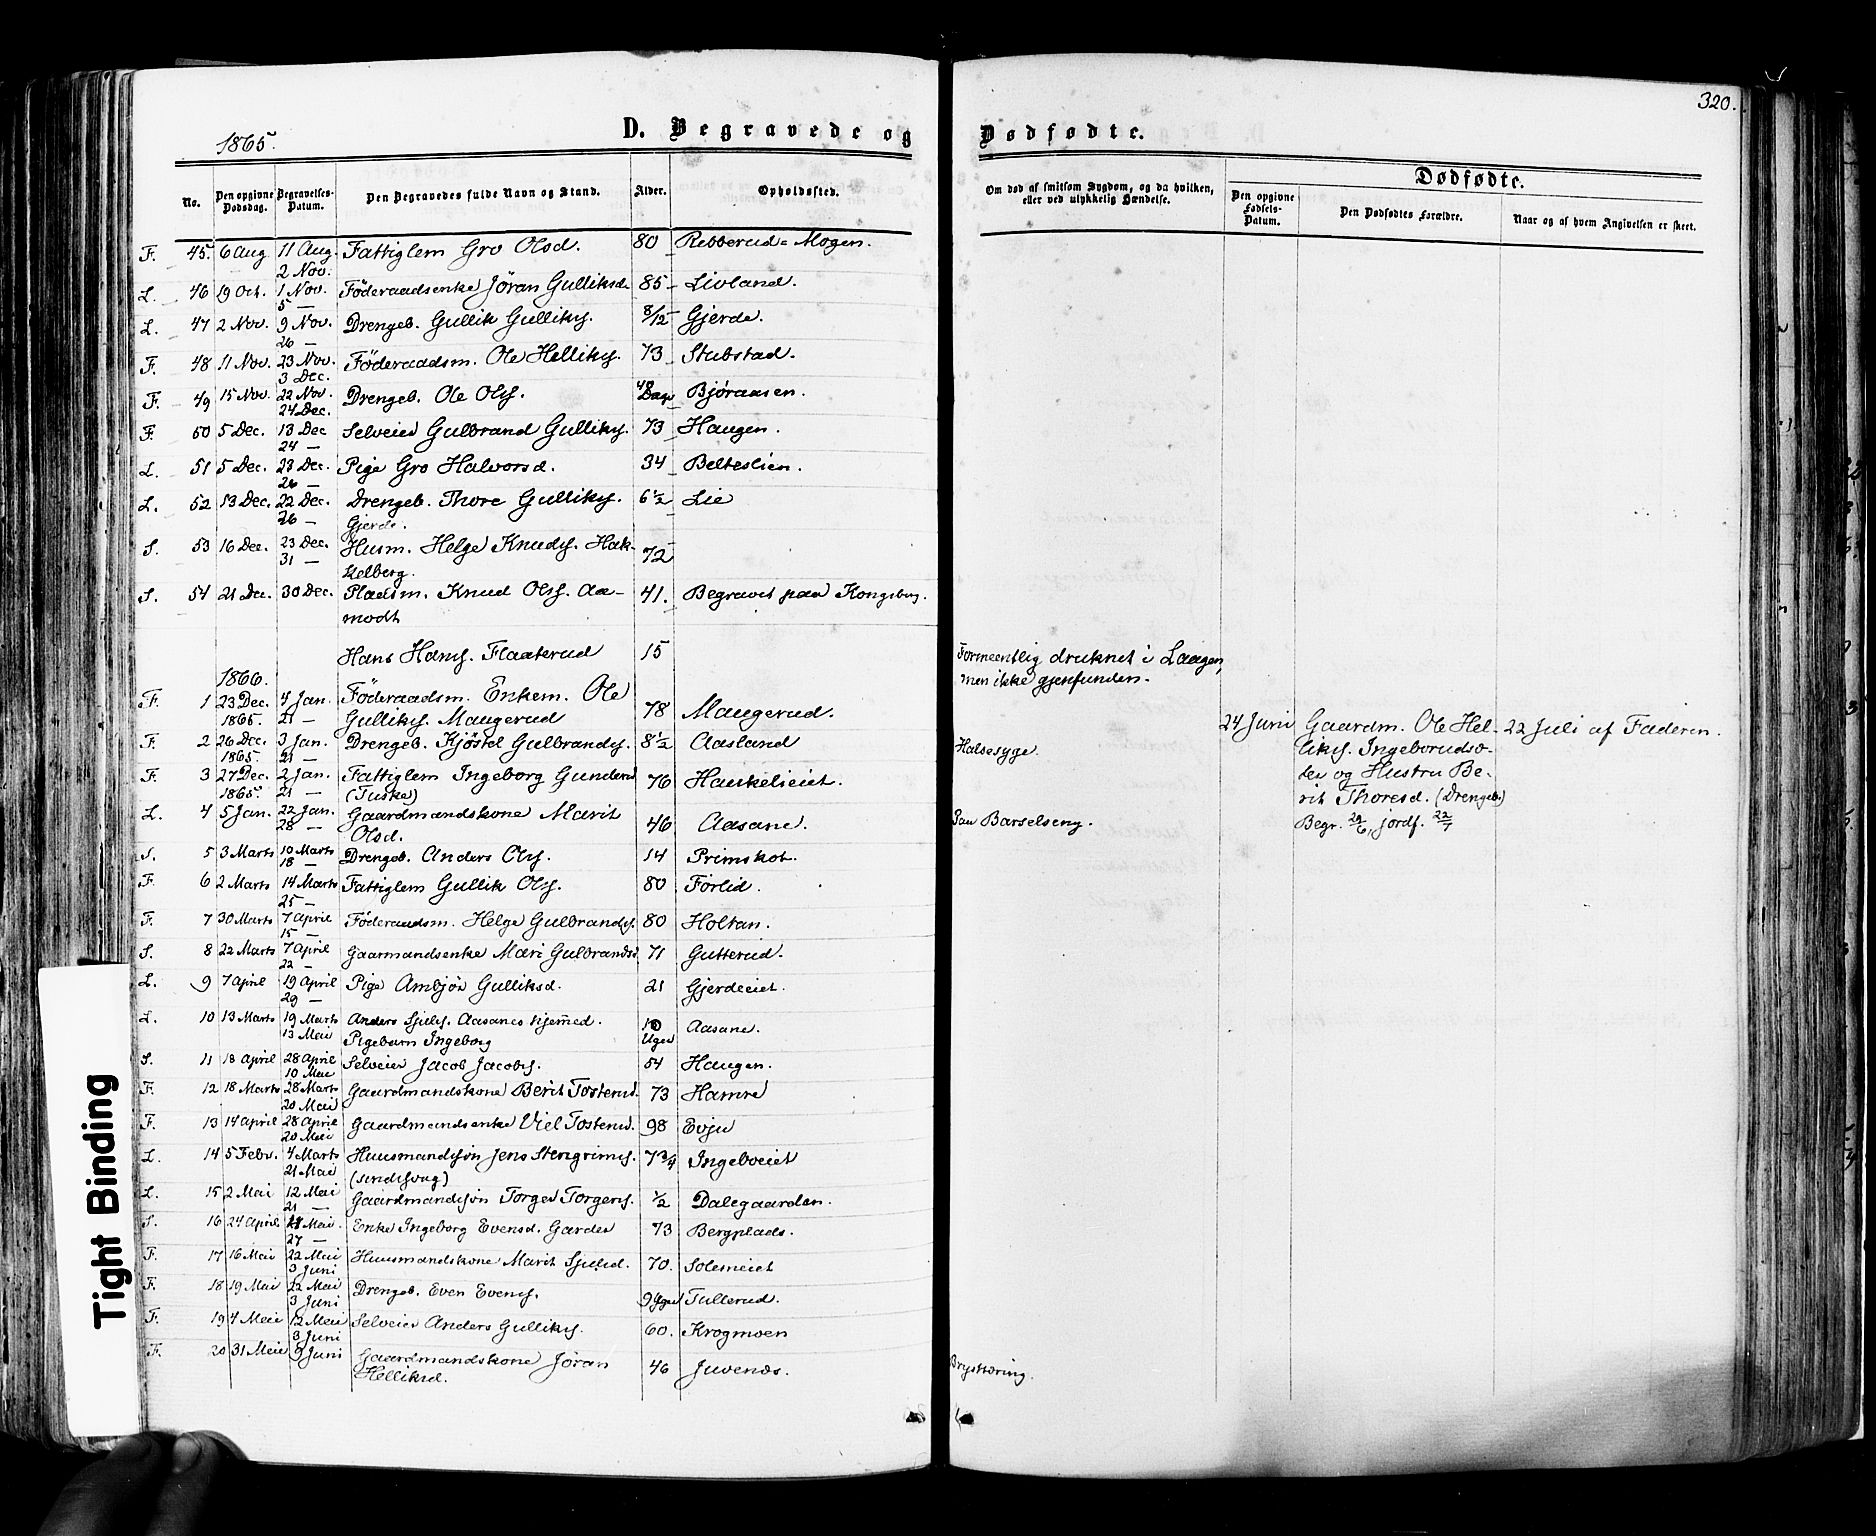 320.
1865.
D. Begravede og Dødfødte.
No. Den opgivne Dødsdag. Begravelses-Datum. Den Begravedes fulde Navn og Stand. Alder. Opholdssted.
Om død af smitsom Sygdom, og da hvilken, eller ved ulykkelig Hændelse.
Dødfødte.
Den opgivne Fødsels-Datum. Den Dødfødtes Forældre. Naar og af hvem Angivelsen er skeet.
F. 45. 6 Aug 11 Aug. Fattiglem Gro Olsd. 80 Rebberud-Mogen.
2 Nov.
L. 46 19 Oct. 1 Nov. Föderaadsenke Jöran Gulliksd. 85 Livland.
5 —
L. 47 2 Nov. 9 Nov. Drengeb. Gullik Gulliks. 8/12 Gjerde.
26 —
F. 48 11 Nov. 23 Nov. Föderaadsm. Ole Helliks. 73 Stubstad.
3 Dec.
F. 49 15 Nov. 22 Nov. Drengeb. Ole Ols. Dage Björaasen.
24 Dec.
F. 50 5 Dec. 13 Dec Selveier Gulbrand Gulliks. 73 Haugen.
24 —
L. 51 5 Dec. 23 Dec. Pige Gro Halvorsd. 34 Belteslien.
26 —
L. 52 13 Dec. 22 Dec. Drengeb. Thore Gulliks. 6½ Lie
26 — Gjerde.
S. 53 16 Dec. 23 Dec. Husm. Helge Knuds. Hak-
31 — kelberg. 72
S. 54 21 Dec. 30 Dec. Pladsm. Knud Ols. Aa- 41. Begravet paa Kongsberg.
modt
Hans Hans. Flaaterud 15 Formeentlig druknet i Laagen,
men ikke gjenfunden.
1866.
F. 1 23 Dec. 4 Jan. Föderaadsm. Enkem. Ole
1865. 21 — Gulliks. Maugerud 78 Maugerud.
F. 2 26 Dec. 3 Jan. Drengeb. Kjöstel Gulbrands. 8½ Aasland Halsesyge.
1865. 21 —
F. 3 27 Dec. 2 Jan. Fattiglem Ingeborg Gundersd 76 Haukelieiet.
1865. 21 — (Tuske)
L. 4 5 Jan. 22 Jan. Gaardmandskone Marit
28 — Olsd. 46 Aasane. Paa Barselseng.
S. 5 3 Marts 10 Marts Drengeb. Anders Ols. 14 Primskot.
18 —
F. 6 2 Marts 14 Marts Fattiglem Gullik Ols. 80 Förlid.
25 —
F. 7 30 Marts 7 April Föderaadsm. Helge Gulbrands. 80 Holtan.
15 —
S. 8 22 Marts 7 April Gaarmandsenke Mari Gulbrandsd. 71 Gutterud.
22 —
L. 9 7 April 19 April Pige Ambjör Gulliksd. 21 Gjerdeeiet.
29 —
L. 10 13 Marts 19 Marts Anders Sjuls. Aasanes hjemmed. 10 Aasane.
13 Mai Pigebarn Ingeborg Uger
S. 11 18 April 28 April Selveier Jacob Jacobs. 54 Haugen.
10 Mai
F. 12 18 Marts 28 Marts Gaardmandskone Berit Tostensd. 73 Hamre
20 Mai
F. 13 14 April 28 April Gaardmandsenke Viel Tostensd. 98 Evju
20 Mai
L. 14 5 Febr. 4 Marts Huusmandssön Jens Stengrims. 7¾ Ingebveiet
21 Mai (sindssvag)
L. 15 2 Mai 12 Mai Gaardmandssön Torger Torgers. ½ Dalegaarden.
21 —
S. 16 24 April Mai. Enke Ingeborg Evensd. Garder 73 Bergplads.
27 —
F. 17 16 Mai 22 Mai Huusmandskone Marit Sjulsd. 70. Solemeiet
3 Juni
F. 18 19 Mai 22 Mai Drengeb. Even Evens. Tullerud.
3 Juni
F. 19 4 Mai 12 Mai Selveier Anders Gulliks. 60. Krogmoen
3 Juni
F. 20 31 Mai 9 Juni Gaardmandskone Jöran 46 Juvenæs. Brysttæring.
Helliksd.
24 Juni Gaardm. Ole Hel- 22 Juli af Faderen.
liks. Ingeborudsö-
der og Hustru Be-
rit Thoresd. (Drengeb.)
Begr. 29/6, jordf. 22/7
Tight Binding